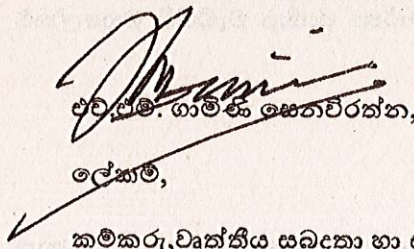 එච්.එම්. ගාමිණී සෙනවිරත්න,
ලේකම්,
කම්කරු,වෘත්තීය සබදතා හා